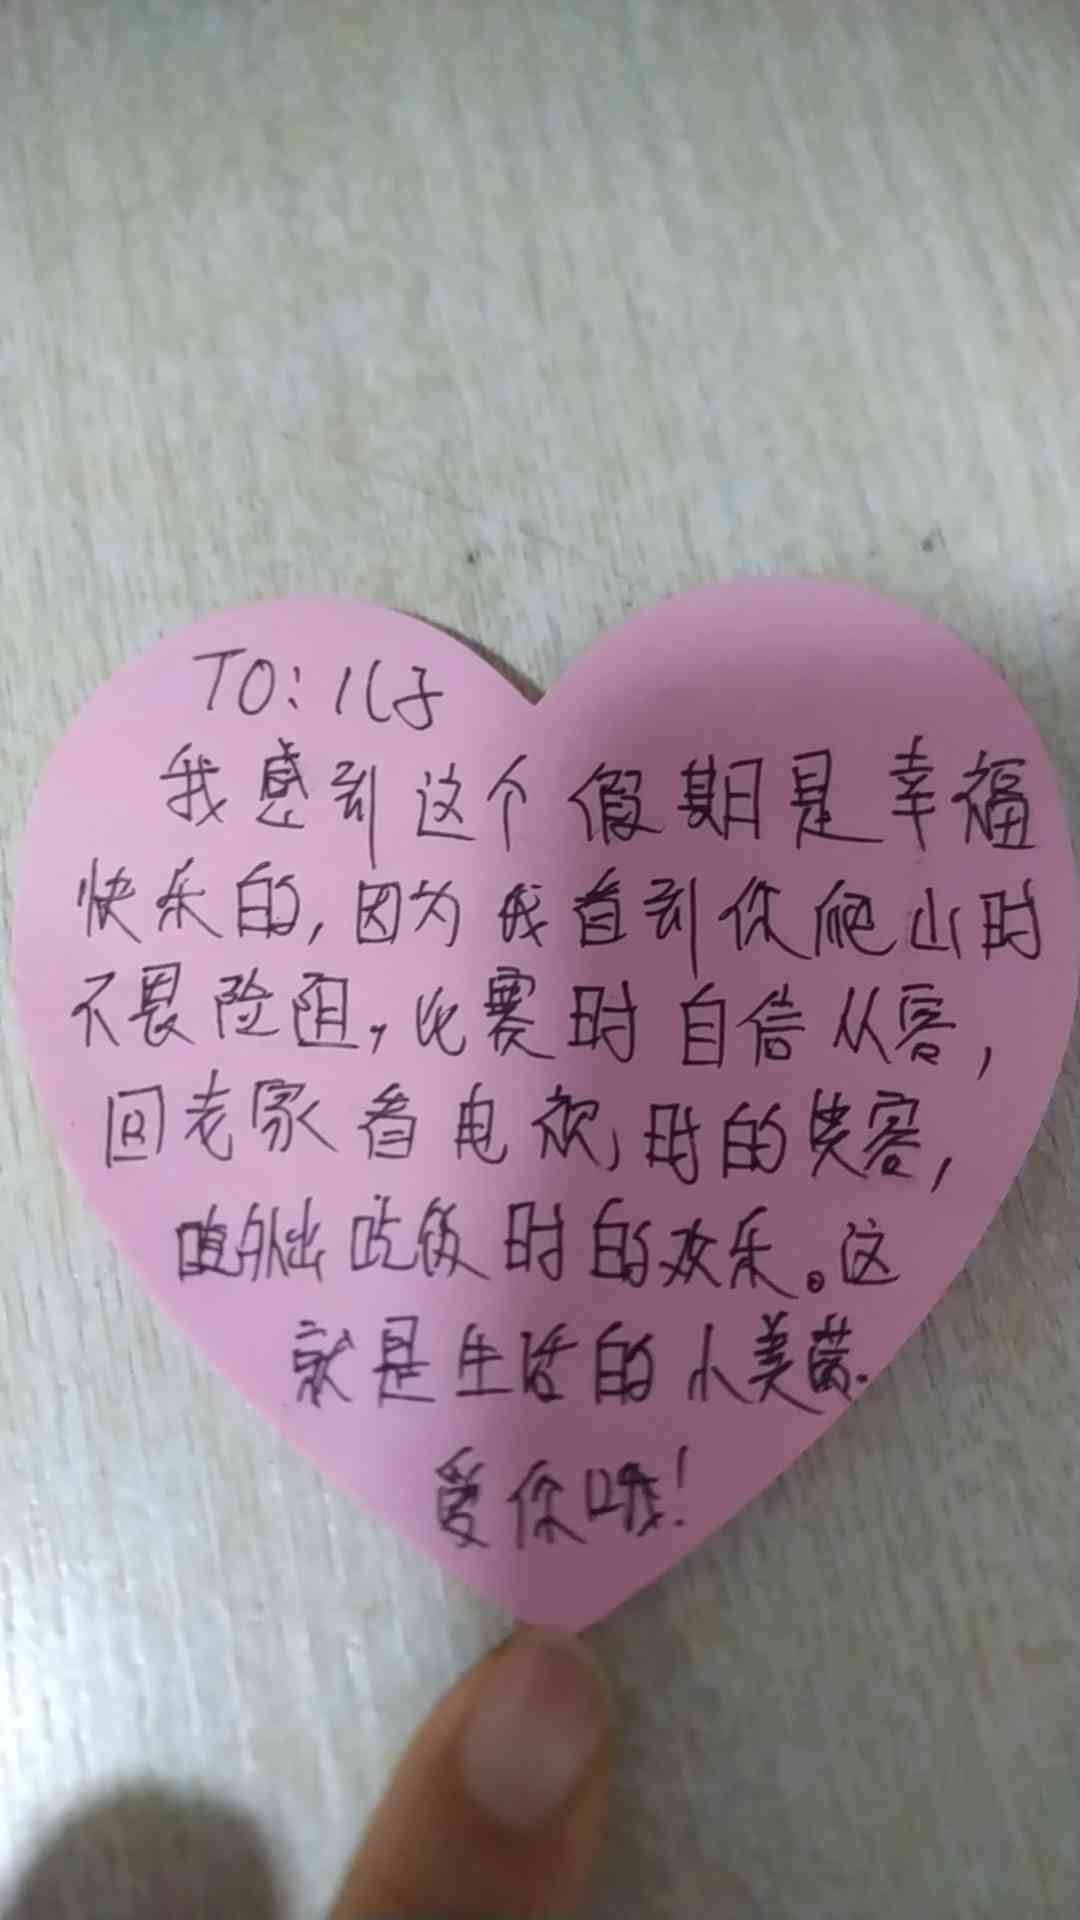 TO:儿子
我感到这个假期是幸福
快乐的,因为我看到你爬山时
不畏险阻,比赛时自信从容,
回老家看电视时的笑容,
外出吃饭时的欢乐。这
就是生活的小美满.
爱你哦!